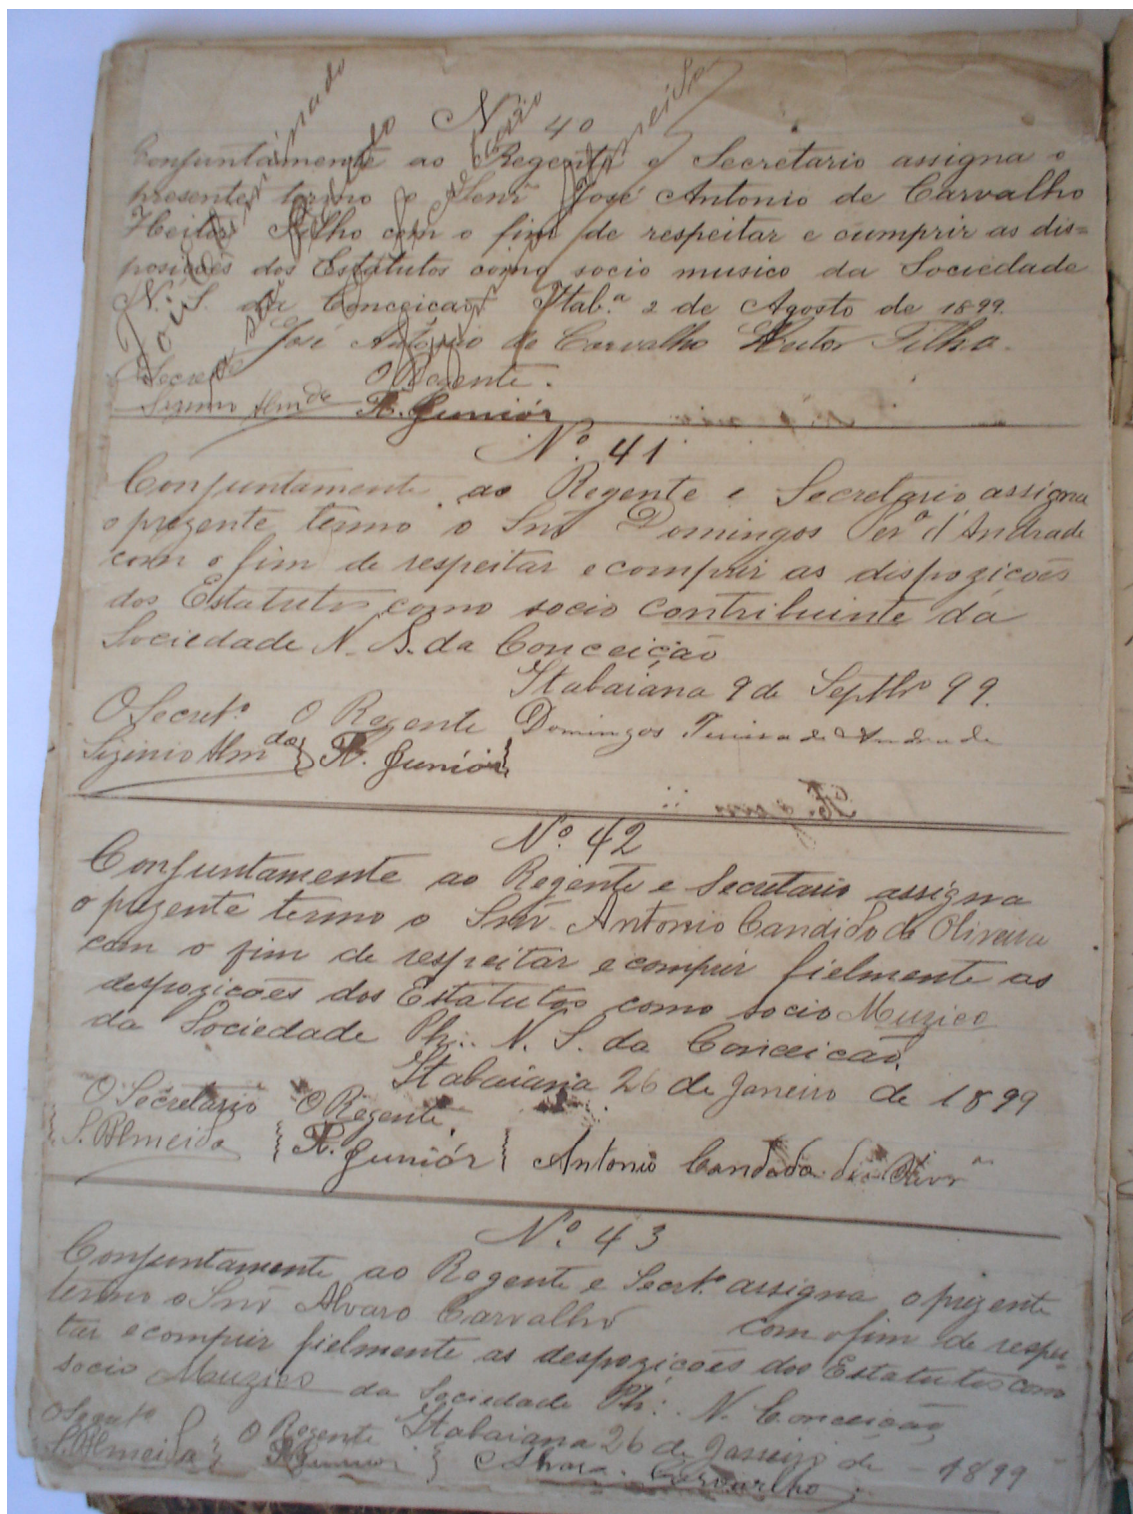 Nº 40
Conjuntamente ao Regente e Secretario assigna o
presente termo o Senr José Antonio de Carvalho
Heitor Filho com o fim de respeitar e cumprir as dis=
posições dos Estatutos como socio musico da Sociedade
N. S. da Conceição Itab.ª 2 de Agosto de 1899.
José Antonio de Carvalho Heitor Filho.
O Regente.
F. Juniór
Nº. 41
Conjuntamente ao Regente e Secretario assigna
o prezente termo o Snr Domingos Perª d'Andrade
com o fim de respeitar e comprir as dispozicoẽs
dos Estatutos como socio contribuinte da
Sociedade N. S. da Conceição
Itabaiana 9 de Septbrº 99.
O Secretº. O Regente Domingos Pereira de Andrade
Sizinio Almda F. Junior
Nº. 42
Conjuntamente ao Regente e Secretario assigna
o prezente termo o Snr. Antonio Candido de Oliveira
com o fim de respeitar e comprir fielmente as
despozicoẽs dos Estatutos como socio Muzico
da Sociedade Ph:. N. S. da Conceicaõ,
Itabaiana 26 de Janeiro de 1899
O Secretario O Regente,
S. Almeida F. Juniór Antonio Candado de Olivrª
Nº. 43
Conjuntamente ao Regente e Secrtº assigna o prezente
termo o Snr Alvaro Carvalho com o fim de respei-
tar e comprir fielmente as despozicoẽs dos Estatutos como
socio Muzico da Sociedade Ph:. N. Conceicaõ
Itabaiana 26 de Janeiro de 1899
O Secretº O Regente
S. Almeida F. Junior Alvaro Carvalho